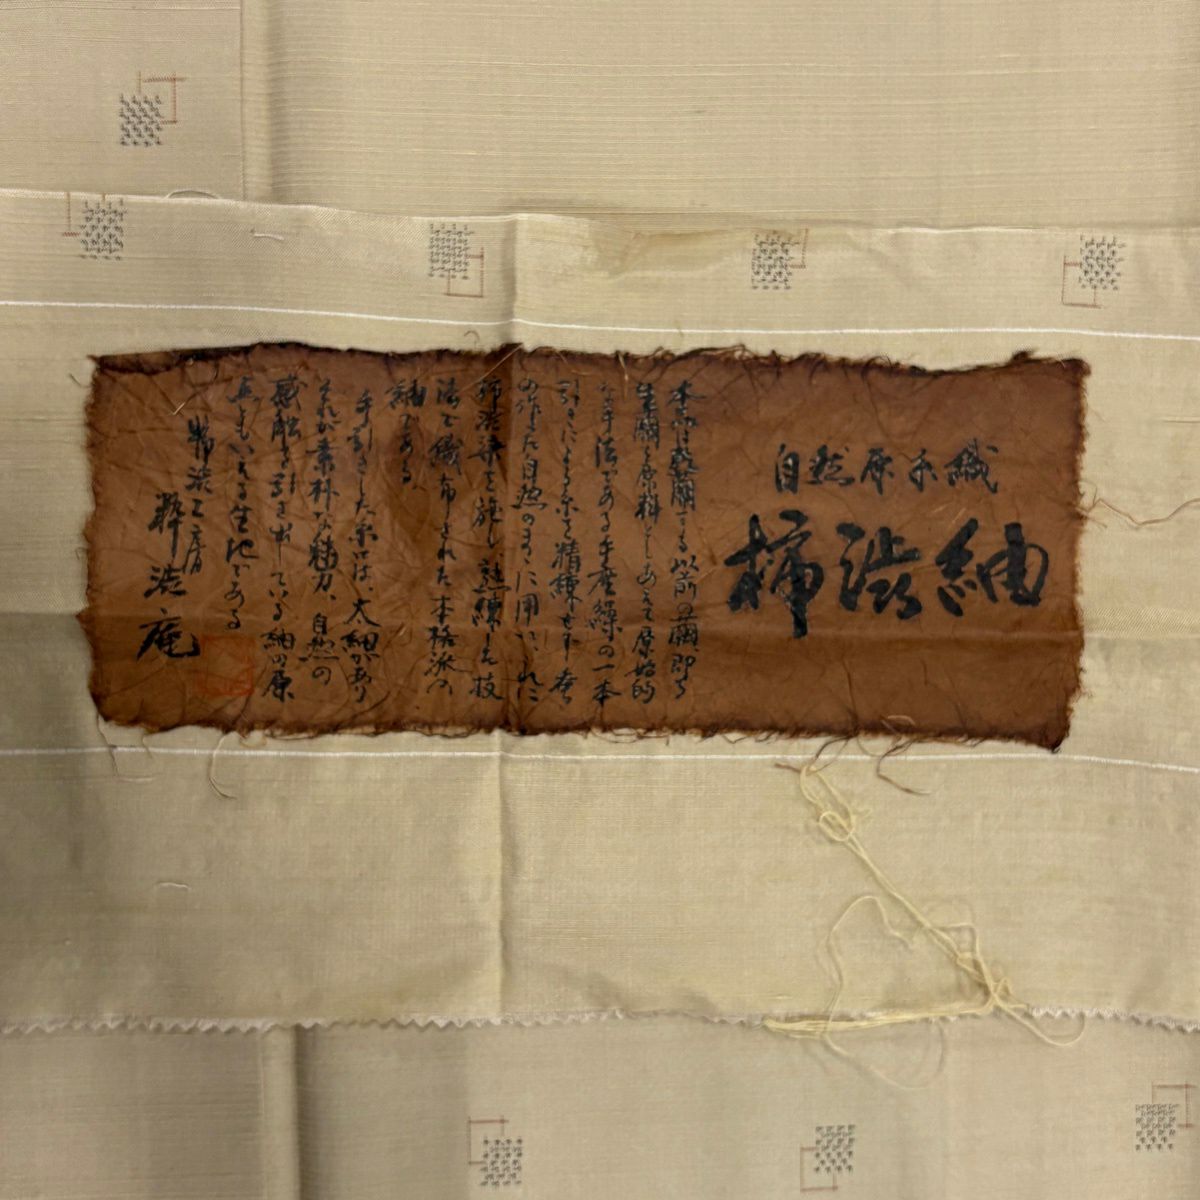 自然原糸織
柿渋紬
本品は乾繭する以前の繭即ち
生繭を原料としあえて原始的
な手法である手座繰の一本
引きによる糸を精練せず蚕
の作った自然のままに用い、これに
柿渋染を施し、熟練した技
法で織布された本格派の
紬である
手引きした糸には、太細があり
それが素朴な魅力、自然の
感触を引き出している紬の原
点ともいえる生地である
柿渋工房
粋渋庵